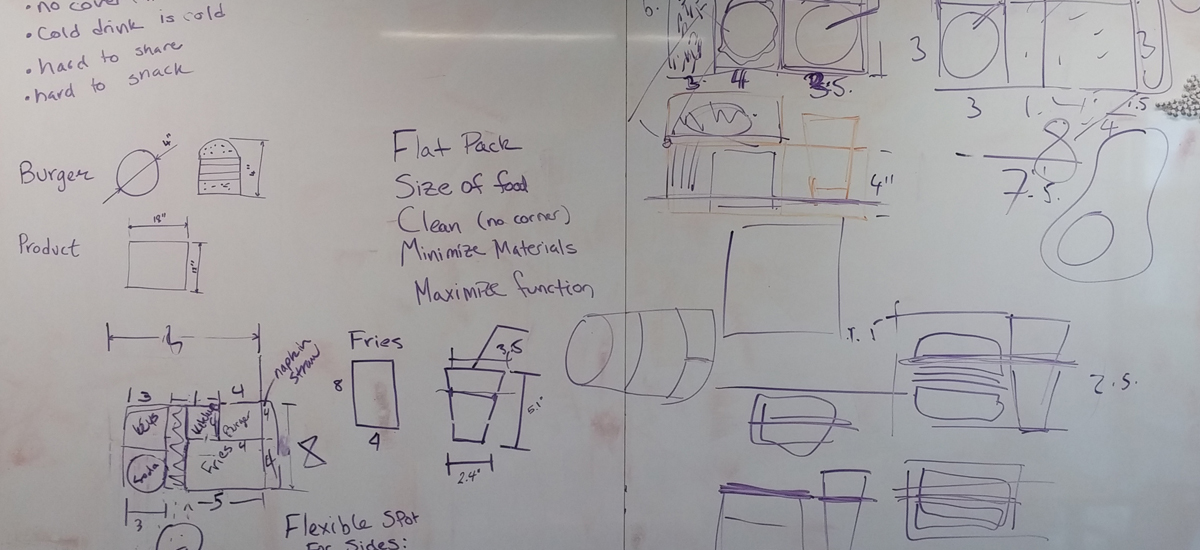 • no cover
• Cold drink is cold
• hard to share
• hard to snack
Burger
4"
4"
Product
18"
11"
Flat Pack
Size of food
Clean (no corner)
Minimize Materials
Maximize function
3
1
4
napkin
straw
Ketchup
Burger
Fries
Soda
4
4
8
3
5
Fries
8
4
3.5
5.1"
2.4"
Flexible Spot
For Sides:
6.
3
4
3.5.
4"
3
3
1
1.5
4
8
7.5.
2.5.